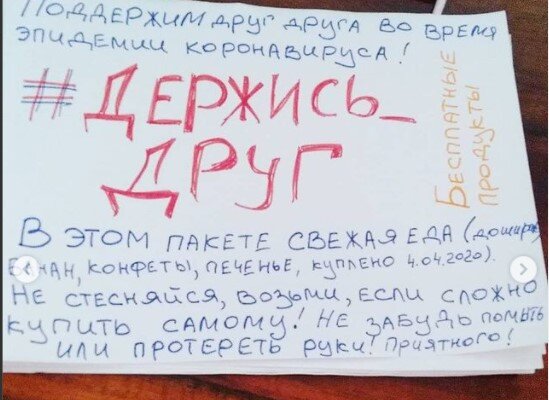 ПОДДЕРЖИМ ДРУГ ДРУГА ВО ВРЕМЯ
ЭПИДЕМИИ КОРОНАВИРУСА!
#ДЕРЖИСЬ_
ДРУГ
БЕСПЛАТНЫЕ
ПРОДУКТЫ
В ЭТОМ ПАКЕТЕ СВЕЖАЯ ЕДА (доширак,
БАНАН, КОНФЕТЫ, ПЕЧЕНЬЕ, КУПЛЕНО 4.04.2020).
НЕ СТЕСНЯЙСЯ, ВОЗЬМИ, ЕСЛИ СЛОЖНО
КУПИТЬ САМОМУ! НЕ ЗАБУДЬ ПОМЫТЬ
ИЛИ ПРОТЕРЕТЬ РУКИ! ПРИЯТНОГО!